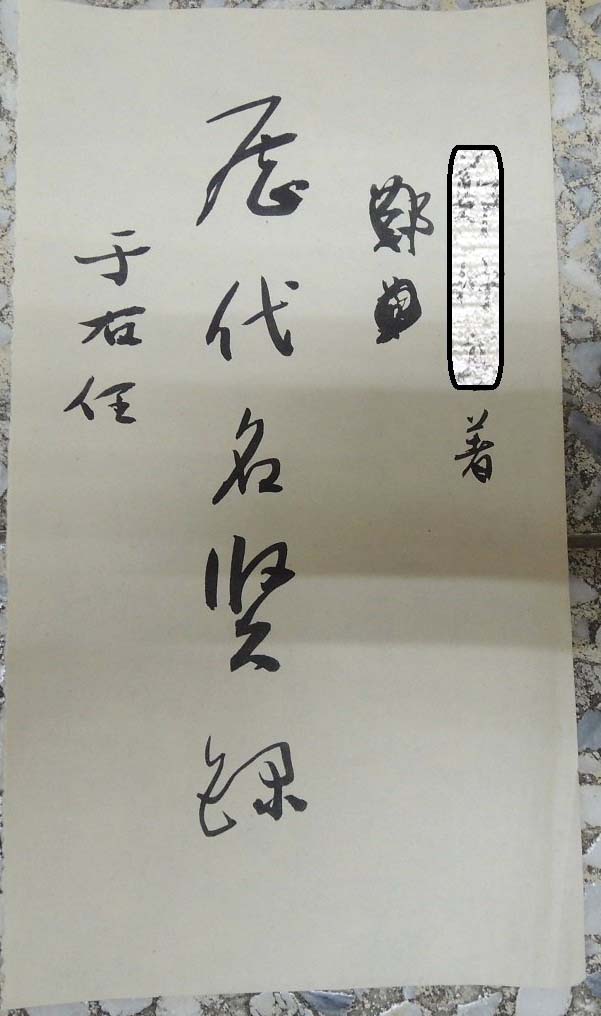 著
鄭
歷代名賢錄
于右任